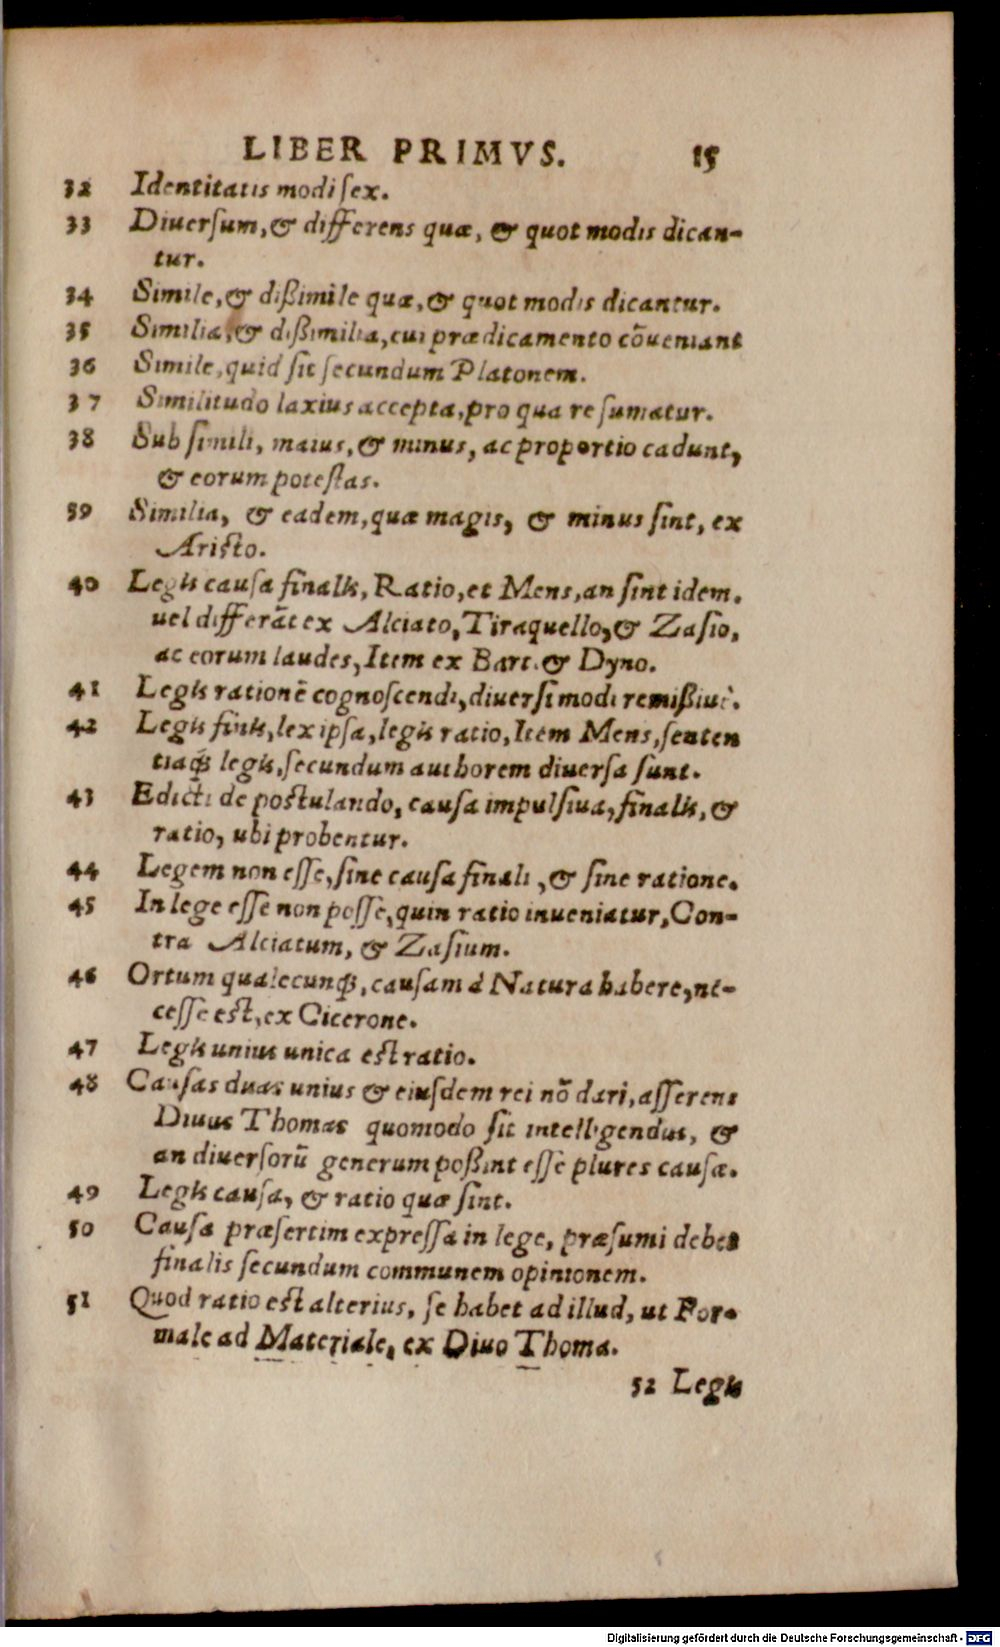 LIBER PRIMVS. 15
32 Identitatis modi ſex.
33 Diuerſum, & differens quæ, & quot modis dican-
tur.
34 Simile, & dißimile quæ, & quot modis dicantur.
35 Similia, & dißimilia, cui prædicamento cōueniant
36 Simile, quid ſit ſecundum Platonem.
37 Similitudo laxius accepta, pro qua re ſumatur.
38 Sub ſimili, maius, & minus, ac proportio cadunt,
& eorum poteſtas.
59 Similia, & eadem, quæ magis, & minus ſint, ex
Ariſto.
40 Legis cauſa finalis, Ratio, et Mens, an ſint idem.
uel differāt ex Alciato, Tiraquello, & Zaſio,
ac eorum laudes, Item ex Bart. & Dyno.
41 Legis rationē cognoſcendi, diuerſi modi remißiuè.
42 Legis finis, lex ipſa, legis ratio, Item Mens, ſenten
tiaq́; legis, ſecundum authorem diuerſa sunt.
43 Edicti de poſtulando, cauſa impulſiua, finalis, &
ratio, ubi probentur.
44 Legem non eſſe, ſine cauſa finali, & ſine ratione.
45 In lege eſſe non poſſe, quin ratio inueniatur, Con-
tra Alciatum, & Zaſium.
46 Ortum qualecunq;, cauſam à Natura habere, ne-
ceſſe eſt, ex Cicerone.
47 Legis unius unica eſt ratio.
48 Cauſas duas unius & eiuſdem rei nō dari, aſſerens
Diuus Thomas quomodo ſit intelligendus, &
an diuerſorū generum poßint eſſe plures cauſæ.
49 Legis cauſa, & ratio quæ ſint.
50 Cauſa præſertim expreſſa in lege, præſumi debet
finalis ſecundum communem opinionem.
51 Quod ratio eſt alterius, ſe habet ad illud, ut For-
male ad Materiale, ex Diuo Thoma.
52 Legis
Digitalisierung gefördert durch die Deutsche Forschungsgemeinschaft - DFG